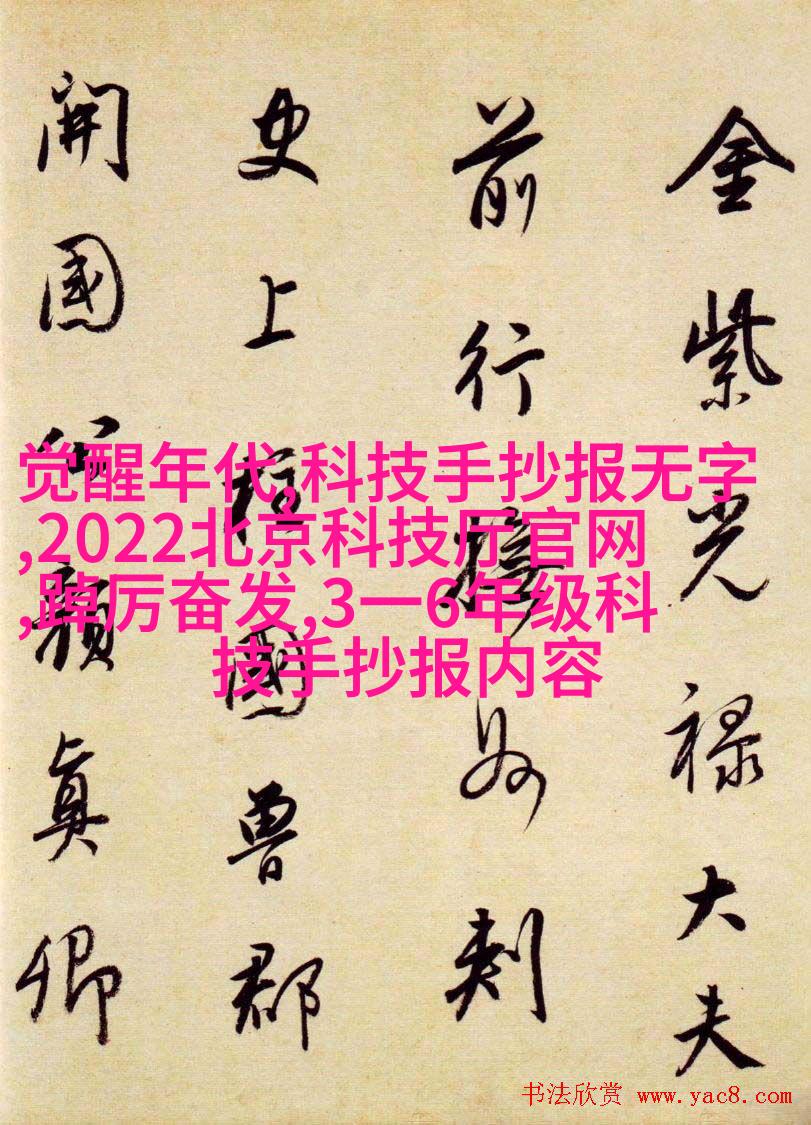 金紫光禄大夫
前行撫州刺
史上柱國魯郡
開國公顏真卿
觉醒年代,科技手抄报无字
,2022北京科技厅官网
,踔厉奋发,3一6年级科
技手抄报内容
书法欣赏 www.yac8.com